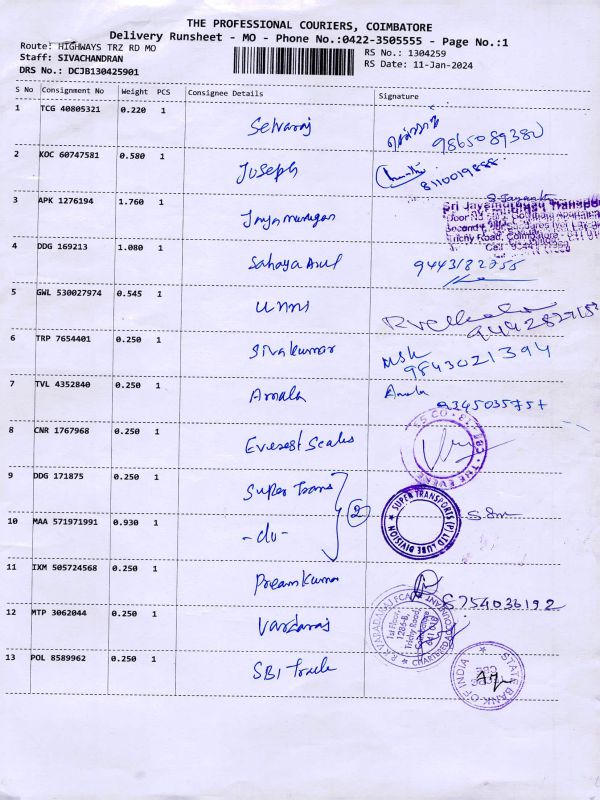 THE PROFESSIONAL COURIERS, COIMBATORE
Delivery Runsheet - MO - Phone No.:0422-3505555 - Page No.:1
Route: HIGHWAYS TRZ RD MO
RS No.: 1304259
Staff: SIVACHANDRAN
RS Date: 11-Jan-2024
DRS No.: DCJB130425901
S No Consignment No Weight PCS Consignee Details Signature
1 TCG 40805321 0.220 1 Selvaraj
2 KOC 60747581 0.580 1 Joseph 8110019888
3 APK 1276194 1.760 1 Jayamurugan S. Jayanth
Sri Jayamurugan Transport
Trichy Road, Coimbatore
4 DDG 169213 1.080 1 Sahaya Arul 9443182255
5 GWL 530027974 0.545 1
6 TRP 7654401 0.250 1 Sivakumar MSK
9843021394
7 TVL 4352840 0.250 1 Amala Amala
8 CNR 1767968 0.250 1 Everest Scales
9 DDG 171875 0.250 1 Super Trans
2
SUPER TRANSPORTS (P) LTD LUBE DIVISION
10 MAA 571971991 0.930 1 -do-
11 IXM 505724568 0.250 1 Premkumar 8754036192
12 MTP 3062044 0.250 1 Vardaraj
R.K VARADARAJ FCA
1st Floor,
1286-B,
Trichy Road,
Coimbatore
CHARTERED ACCOUNTANT
13 POL 8589962 0.250 1 SBI Trade
STATE BANK OF INDIA